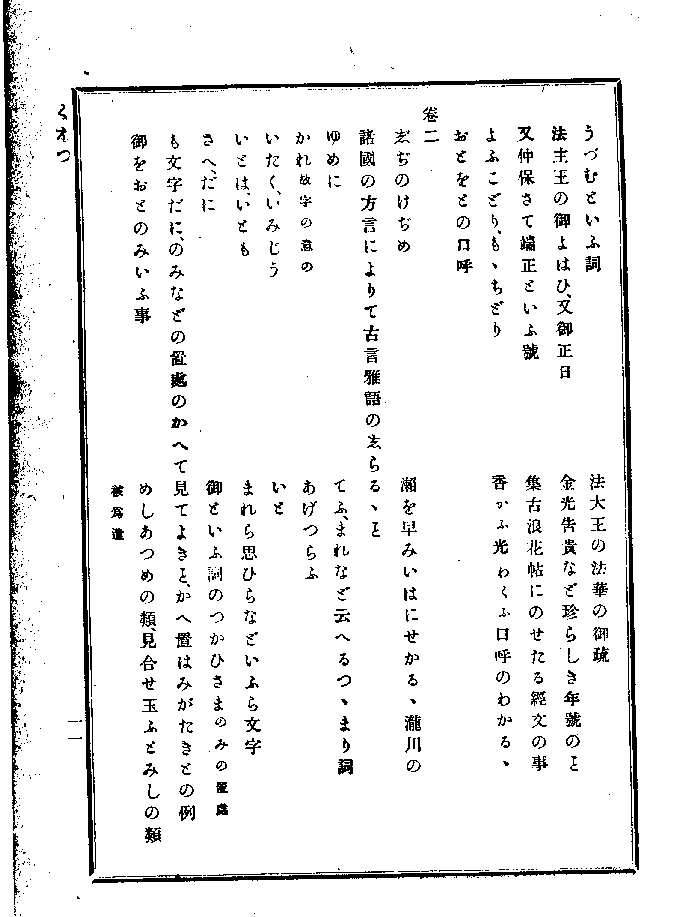 うづむといふ詞
法大王の法華の御疏
法主王の御よはひ、又御正日
金光告貴など珍らしき年號のこと
又仲保さて端正といふ號
集古浪花帖にのせたる經文の事
よふこどり、もゝちどり
香かふ光わくふ口呼のわかるゝ
おとをとの口呼
卷二
志ぢのけぢめ
瀬を早みいはにせかるゝ瀧川の
諸國の方言によりて古言雅語の志らるゝこと
ゆめに
てふ、まれなど云へるつゝまり詞
かれ故字の意の
あげつらふ
いたく、いみじう
いと
いとは、いとも
まれら思ひらなどいふら文字
さへ、だに
御といふ詞のつかひざまのみの置處
も文字だに、のみなどの置處のかへて見てよきと、かへ置はみがたきとの例
御をおとのみいふ事
めしあつめの類、見合せ玉ふとみしの類
被爲遣
くせつ
一一